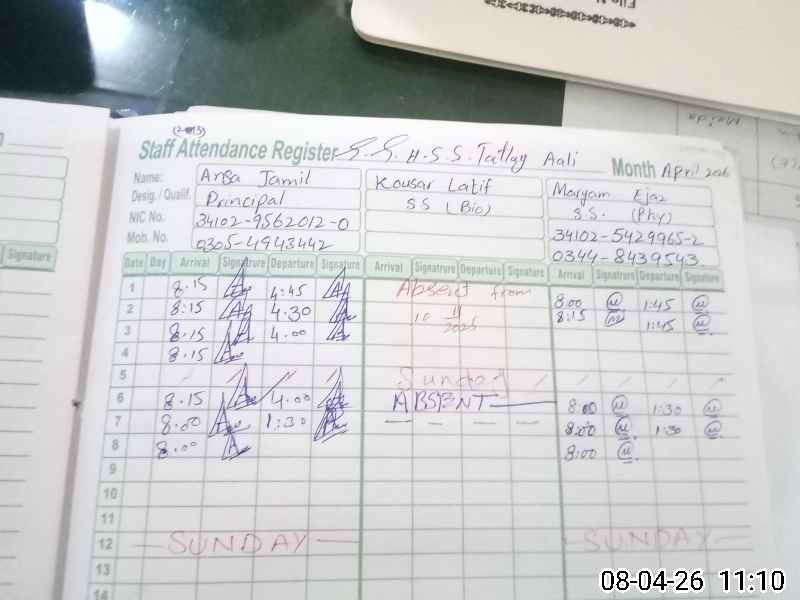 File N
(2013)
Staff Attendance Register G.G.H.S.S. Tatlay Aali Month April 2026
Name: Arsa Jamil Kousar Latif Maryam Ejaz
Desig. / Qualif. Principal SS (Bio) S.S. (Phy)
NIC No. 34102-9562012-0 34102-5429965-2
Mob. No. 0305-4943442 0344-8439543
Signature Date Day Arrival Signatrure Departure Signature Arrival Signatrure Departure Signature Arrival Signatrure Departure Signature
1 8.15 4:45 Absent from 8:00 1:45
2 8:15 4.30 10 11 2025 8:15 1:45
3 8.15 4.00
4 8.15
5 Sunday
6 8.15 4.00 ABSENT 8:00 1:30
7 8.00 1:30 8:00 1:30
8 8.00 8:00
9
10
11
12 SUNDAY SUNDAY
13
14
08-04-26 11:10